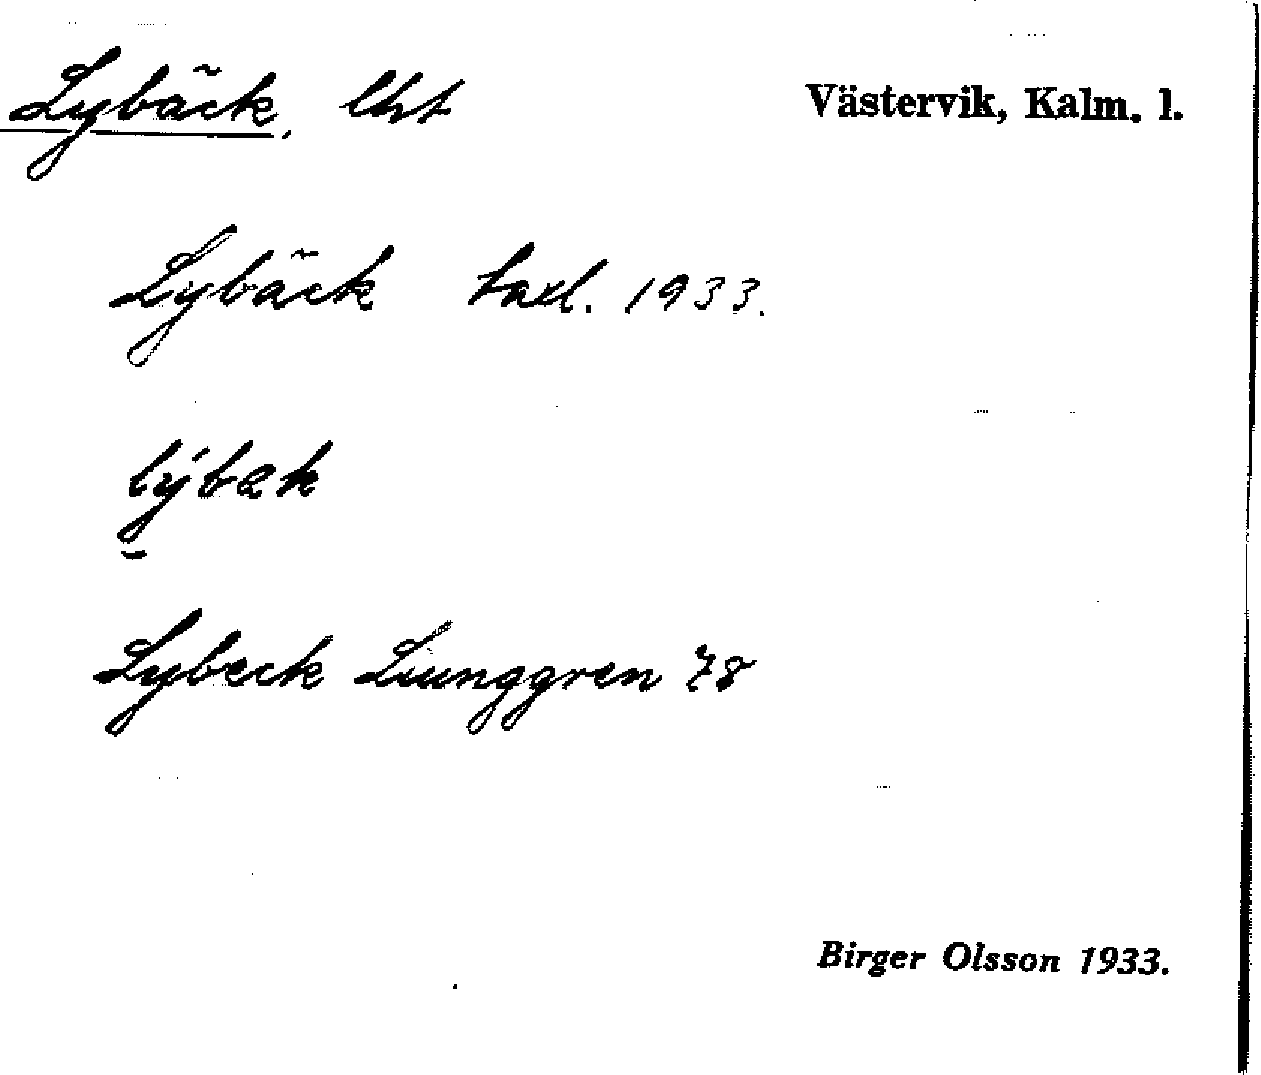 Lybäck, lht Västervik, Kalm. l.
Lybäck taxl. 1933.
lýbæk
Lybeck Liunggren 78
Birger Olsson 1933.